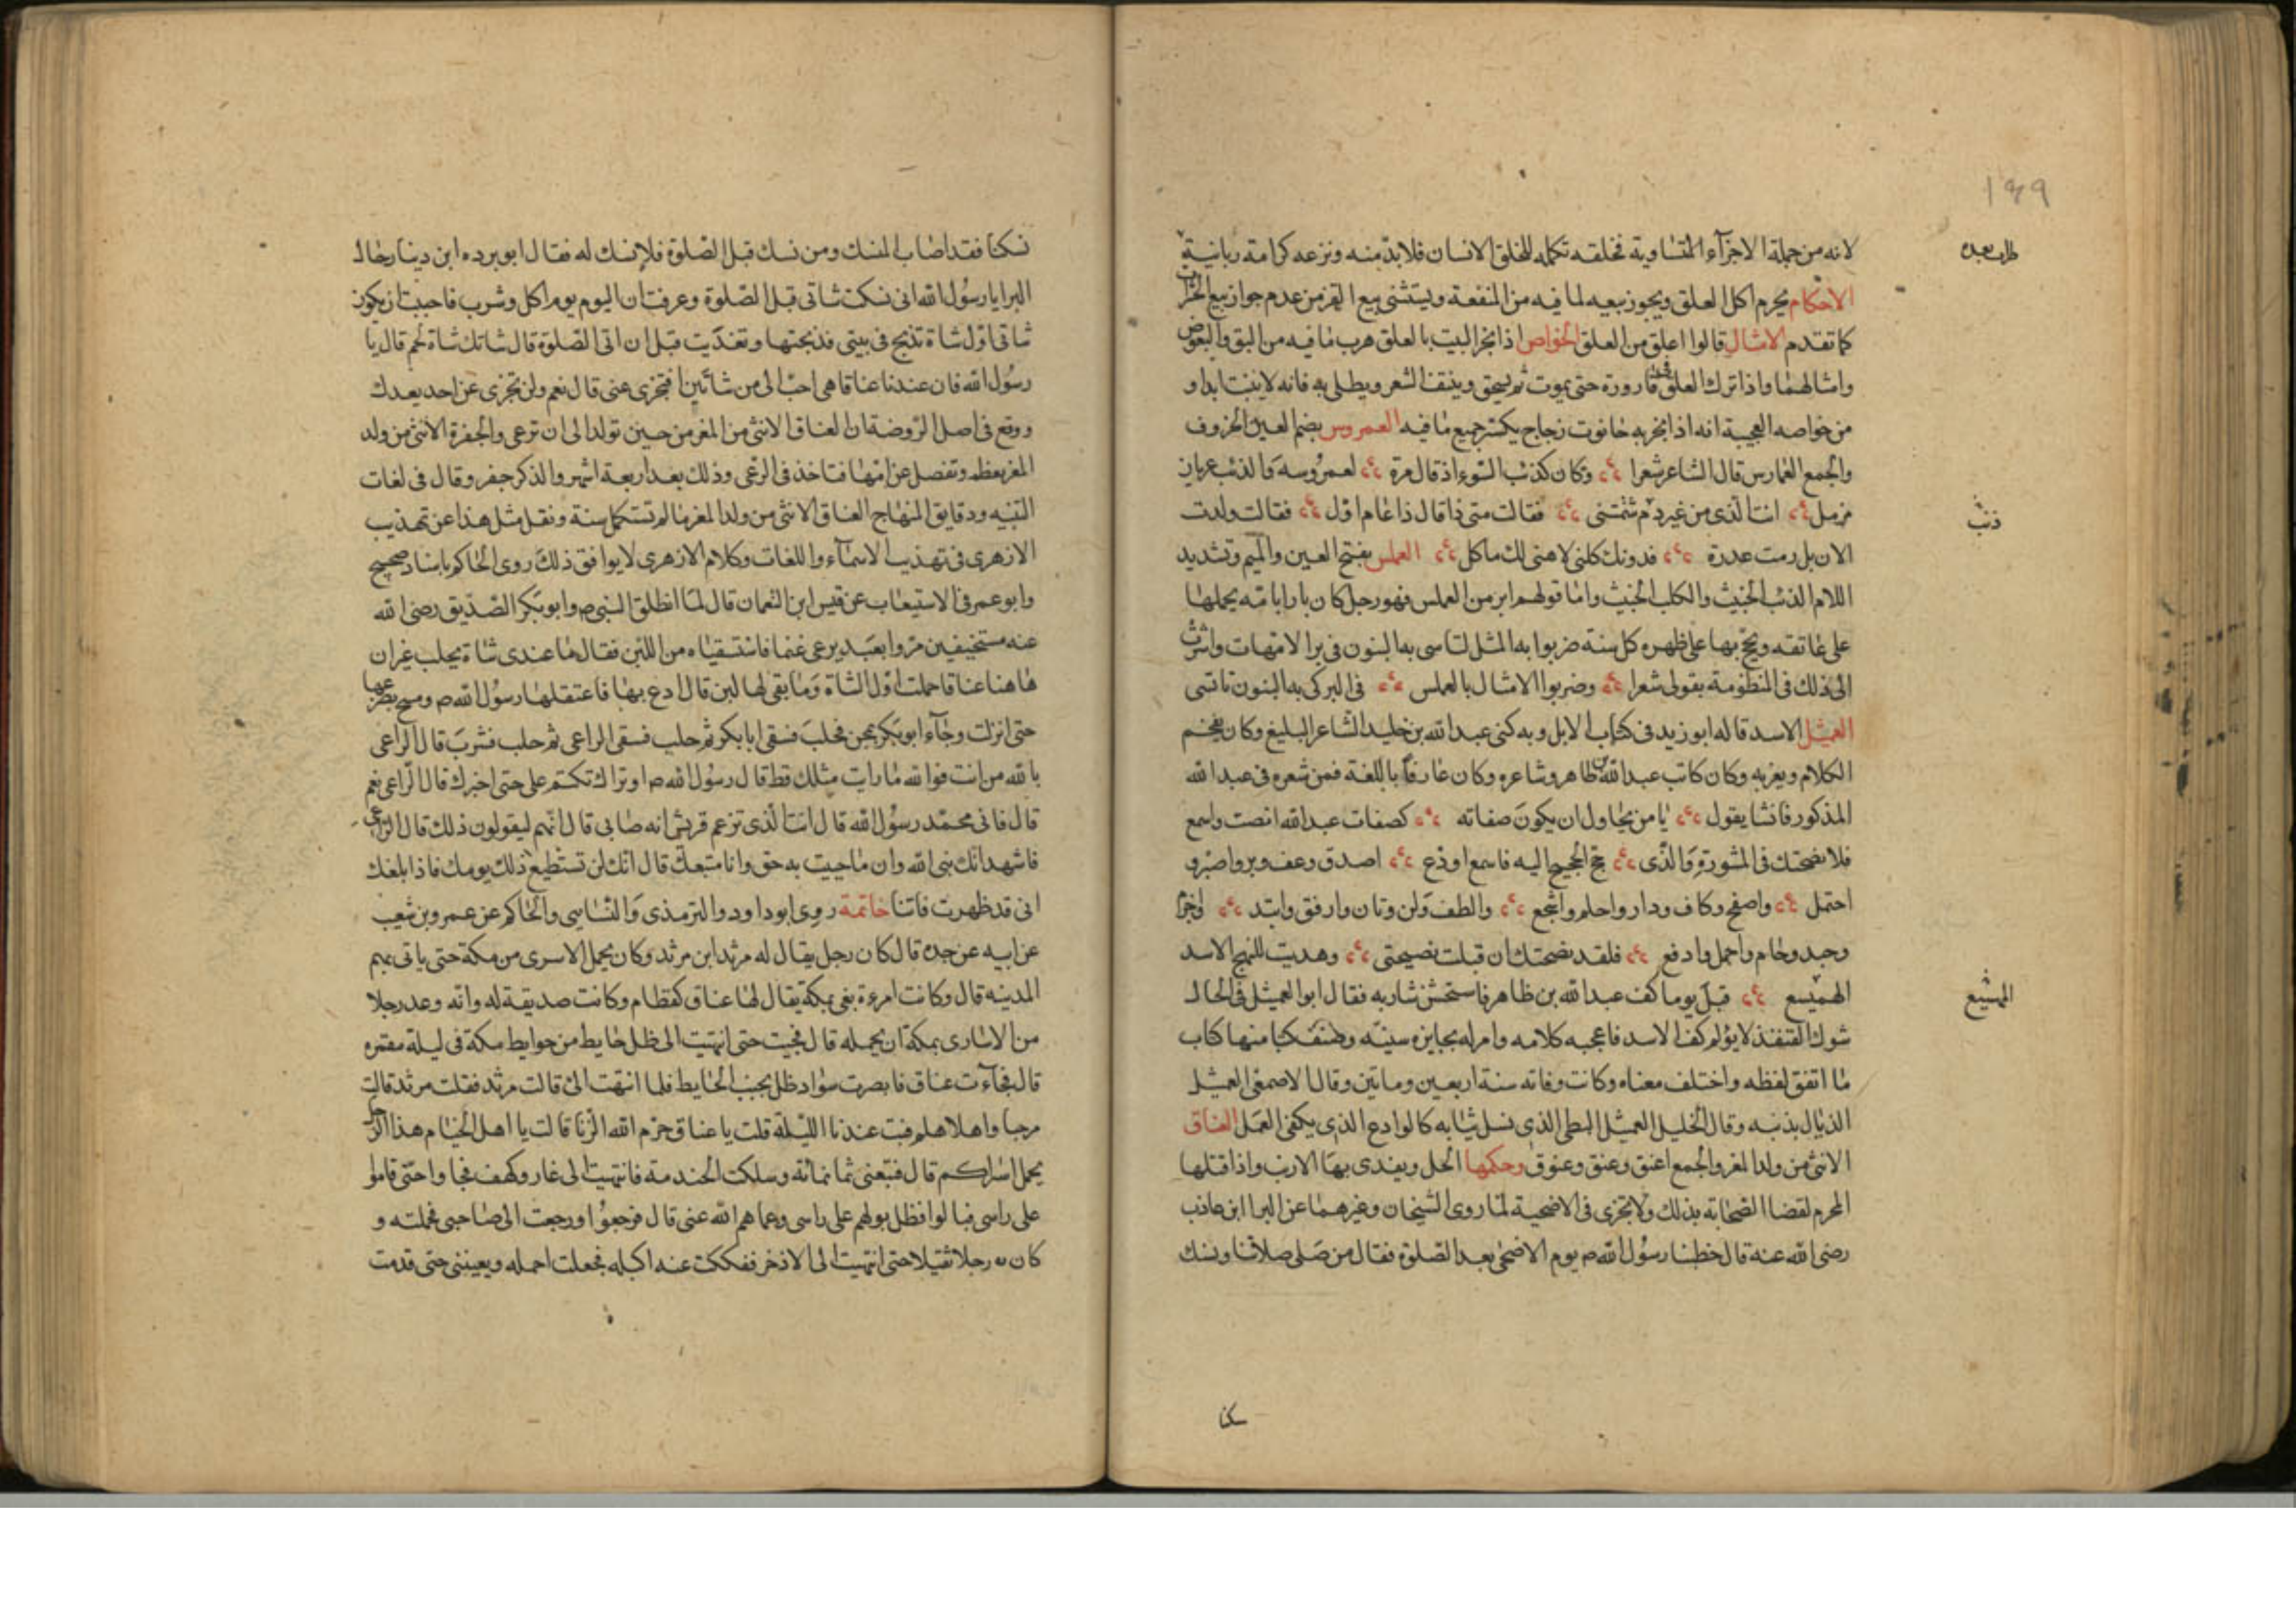 ١٤٩
لانه من جملة الاجزآء المتساوية فخلقه تكمله للخلق الانسان فلابد منه ونزعه كرامة ربانية
الاحكام يحرم اكل العلق ويجوز بيعه لما فيه من المنفعة ويستثنى بيع القز من عدم جواز بيع الحشرات
كما تقدم الامثال قالوا اعلق من العلق الخواص اذا بخر البيت بالعلق هرب ما فيه من البق والبعوض
وامثالهما واذا ترك العلق فى قارورة حتى يموت ثم يسحق وينتف الشعر ويطلى به فانه لا ينبت ابدا و
من خواصه العجيبة انه اذا بخر به حانوت زجاج يكسر جميع ما فيه العمروس بضم العين الخروف
والجمع العمارس قال الشاعر شعرا وكان كذئب السوء اذ قال مرة لعمروسه والذئب عريان
مزمل انت الذى من غير دم شتمتنى فقالت متى ذا قال ذا عام اول فقالت ولدت
ذئب
الان بل رمت عدرة فدونك كلنى لا هنى لك ماكل العملس بفتح العين والميم وتشديد
اللام الذئب الخبيث والكلب الخبيث واما قولهم ابر من العملس فهو رجل كان بارا بامه يحملها
على عاتقه ويحج بها على ظهره كل سنة ضربوا به المثل لتاسى به البنون فى برا الامهات واشرت
الى ذلك فى المنظومة بقولى شعرا وضربوا الامثال بالعملس فى البر كى به البنون تاتسى
العميثل الاسد قاله ابوزيد فى كتاب الابل وبه كنى عبد الله بن خليد الشاعر البليغ وكان يفخم
الكلام ويعربه وكان كاتب عبد الله بن طاهر وشاعره وكان عارفا باللغة فمن شعره فى عبد الله
المذكور فانشا يقول يا من يحاول ان يكون صفاته كصفات عبد الله انصت واسمع
فلانصحتك فى المشورة والذى حج الحجيج اليه فاسمع او دع اصدق وعف وبر واصبر و
احتمل واصفح وكاف ودار واحلم واشجع والطف ولن وتان وارفق واتئد واحزم
وجد وحام واحمل وادفع فلقد نصحتك ان قبلت نصيحتى وهديت للنهج الاسد
الهميسع قبل يوما كف عبد الله بن طاهر فاستخشن شاربه فقال ابو العميثل فى الحال
شوك القنفذ لا يؤلم كف الاسد فاعجبه كلامه وامر له بجايزه سنيه وصنف كتبا منها كتاب
ما اتفق لفظه واختلف معناه وكانت وفاته سنة اربعين وماتين وقال الاصمعى العميثل
الذيال بذنبه وقال الخليل العميثل البطى الذى نسل ثيابه كالوادع الذى يكفى العمل العناق
الانثى من ولد المغر والجمع اعنق وعنق وعنوق وحكمها الحل ويفدى بها الارنب واذا قتلها
المحرم لقضا الصحابة بذلك ولا تجزى فى الاضحية لما روى الشيخان وغيرهما عن البرا ابن عاذب
رضى الله عنه قال خطبنا رسول الله ص يوم الاضحى بعد الصلوة فقال من صلى صلاتنا ونسك
نسكنا فقد اصاب المنسك ومن نسك قبل الصلوة فلا نسك له فقال ابو برده ابن دينار خال
البرا يا رسول الله انى نسكت شاتى قبل الصلوة وعرفت ان اليوم يوم اكل وشرب فاحببت ان يكون
شاتى اول شاة تذبح فى بيتى فذبحتها وتغديت قبل ان اتى الصلوة قال شاتك شاة لحم قال يا
رسول الله فان عندنا عناقا هى احب الى من شاتين افتجزى عنى قال نعم ولن تجزى عن احد بعدك
ووقع فى اصل الروضة ان العناق الانثى من المغز من حين تولد الى ان ترعى والجفرة الانثى من ولد
المغز يعظم وتفصل عن امها فتاخذ فى الرعى وذلك بعد اربعة اشهر والذكر جفر وقال فى لغات
التنبيه ودقايق المنهاج العناق الانثى من ولد المغز ما لم تستكمل سنة ونقل مثل هذا عن تهذيب
الازهرى فى تهذيب الاسمآء واللغات وكلام الازهرى لا يوافق ذلك روى الحاكم باسناد صحيح
وابو عمر فى الاستيعاب عن قيس ابن النعمان قال لما انطلق النبى ص وابو بكر الصديق رضى الله
عنه مستخيفين مروا بعبد يرعى غنما فاستسقياه من اللبن فقال ما عندى شاة يحلب غير ان
هاهنا عناقا حملت اول الشاة وما بقى لها لبن قال ادع بها فاعتقلها رسول الله ص ومسح بضرعها
حتى انزلت وجآء ابو بكر بمجن فحلب فسقى ابابكر ثم حلب فسقى الراعى ثم حلب فشرب قال الراعى
بالله من انت فوالله ما رايت مثلك قط قال رسول الله ص او تراك تكتم على حتى اخبرك قال الراعى نعم
قال فانى محمد رسول الله قال انت الذى تزعم قريش انه صابى قال انهم ليقولون ذلك قال الراعى
فاشهد انك نبى الله وان ما جيت به حق وانا متبعك قال انك لن تستطيع ذلك يومك فاذا بلغك
انى قد ظهرت فاتنا خاتمة روى ابو داود والترمذى والنساسى والحاكم عن عمرو بن شعيب
عن ابيه عن جده قال كان رجل يقال له مرثد ابن مرثد وكان يحمل الاسرى من مكة حتى ياتى بهم
المدينه قال وكانت امرءة بغى بمكة يقال لها عناق كقطام وكانت صديقة له وانه وعد رجلا
من الاسارى بمكة ان يحمله قال فجيت حتى انتهيت الى ظل حايط من حوايط مكة فى ليلة مقمره
قال فجآءت عناق فابصرت سواد ظل بجنب الحايط فلما انتهت الى قالت مرثد فقلت مرثد قالت
مرحبا واهلا هلم فبت عندنا الليلة قلت يا عناق حرم الله الزنا قالت يا اهل الخيام هذا الرجل
يحمل اسراكم قال فتبعنى ثمانمائة وسلكت الخندمة فانتهيت الى غار وكهف فجاوا حتى قاموا
على راسى فبالوا فظل بولهم على راسى وعماهم الله عنى قال فرجعوا ورجعت الى صاحبى فحملته و
كان رجلا ثقيلا حتى انتهيت الى الاذخر ففككت عنه اكبله فجعلت احمله ويعيننى حتى قدمت